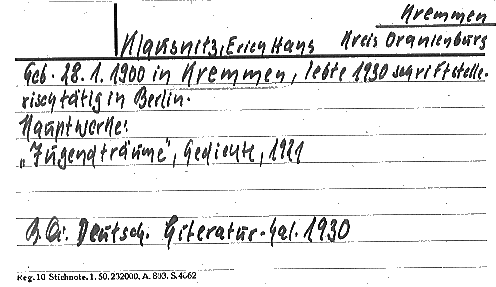 Kremmen
Klausnitz, Erich Hans Kreis Oranienburg
Geb. 28.1.1900 in Kremmen, lebte 1930 schriftstelle-
risch tätig in Berlin.
Hauptwerke:
„Jugendträume", Gedichte, 1921
B. Qu: Deutsch. Literatur-Kal. 1930
Reg. 10 Stichnote. 1. 50. 232000. A. 803. S. 4662